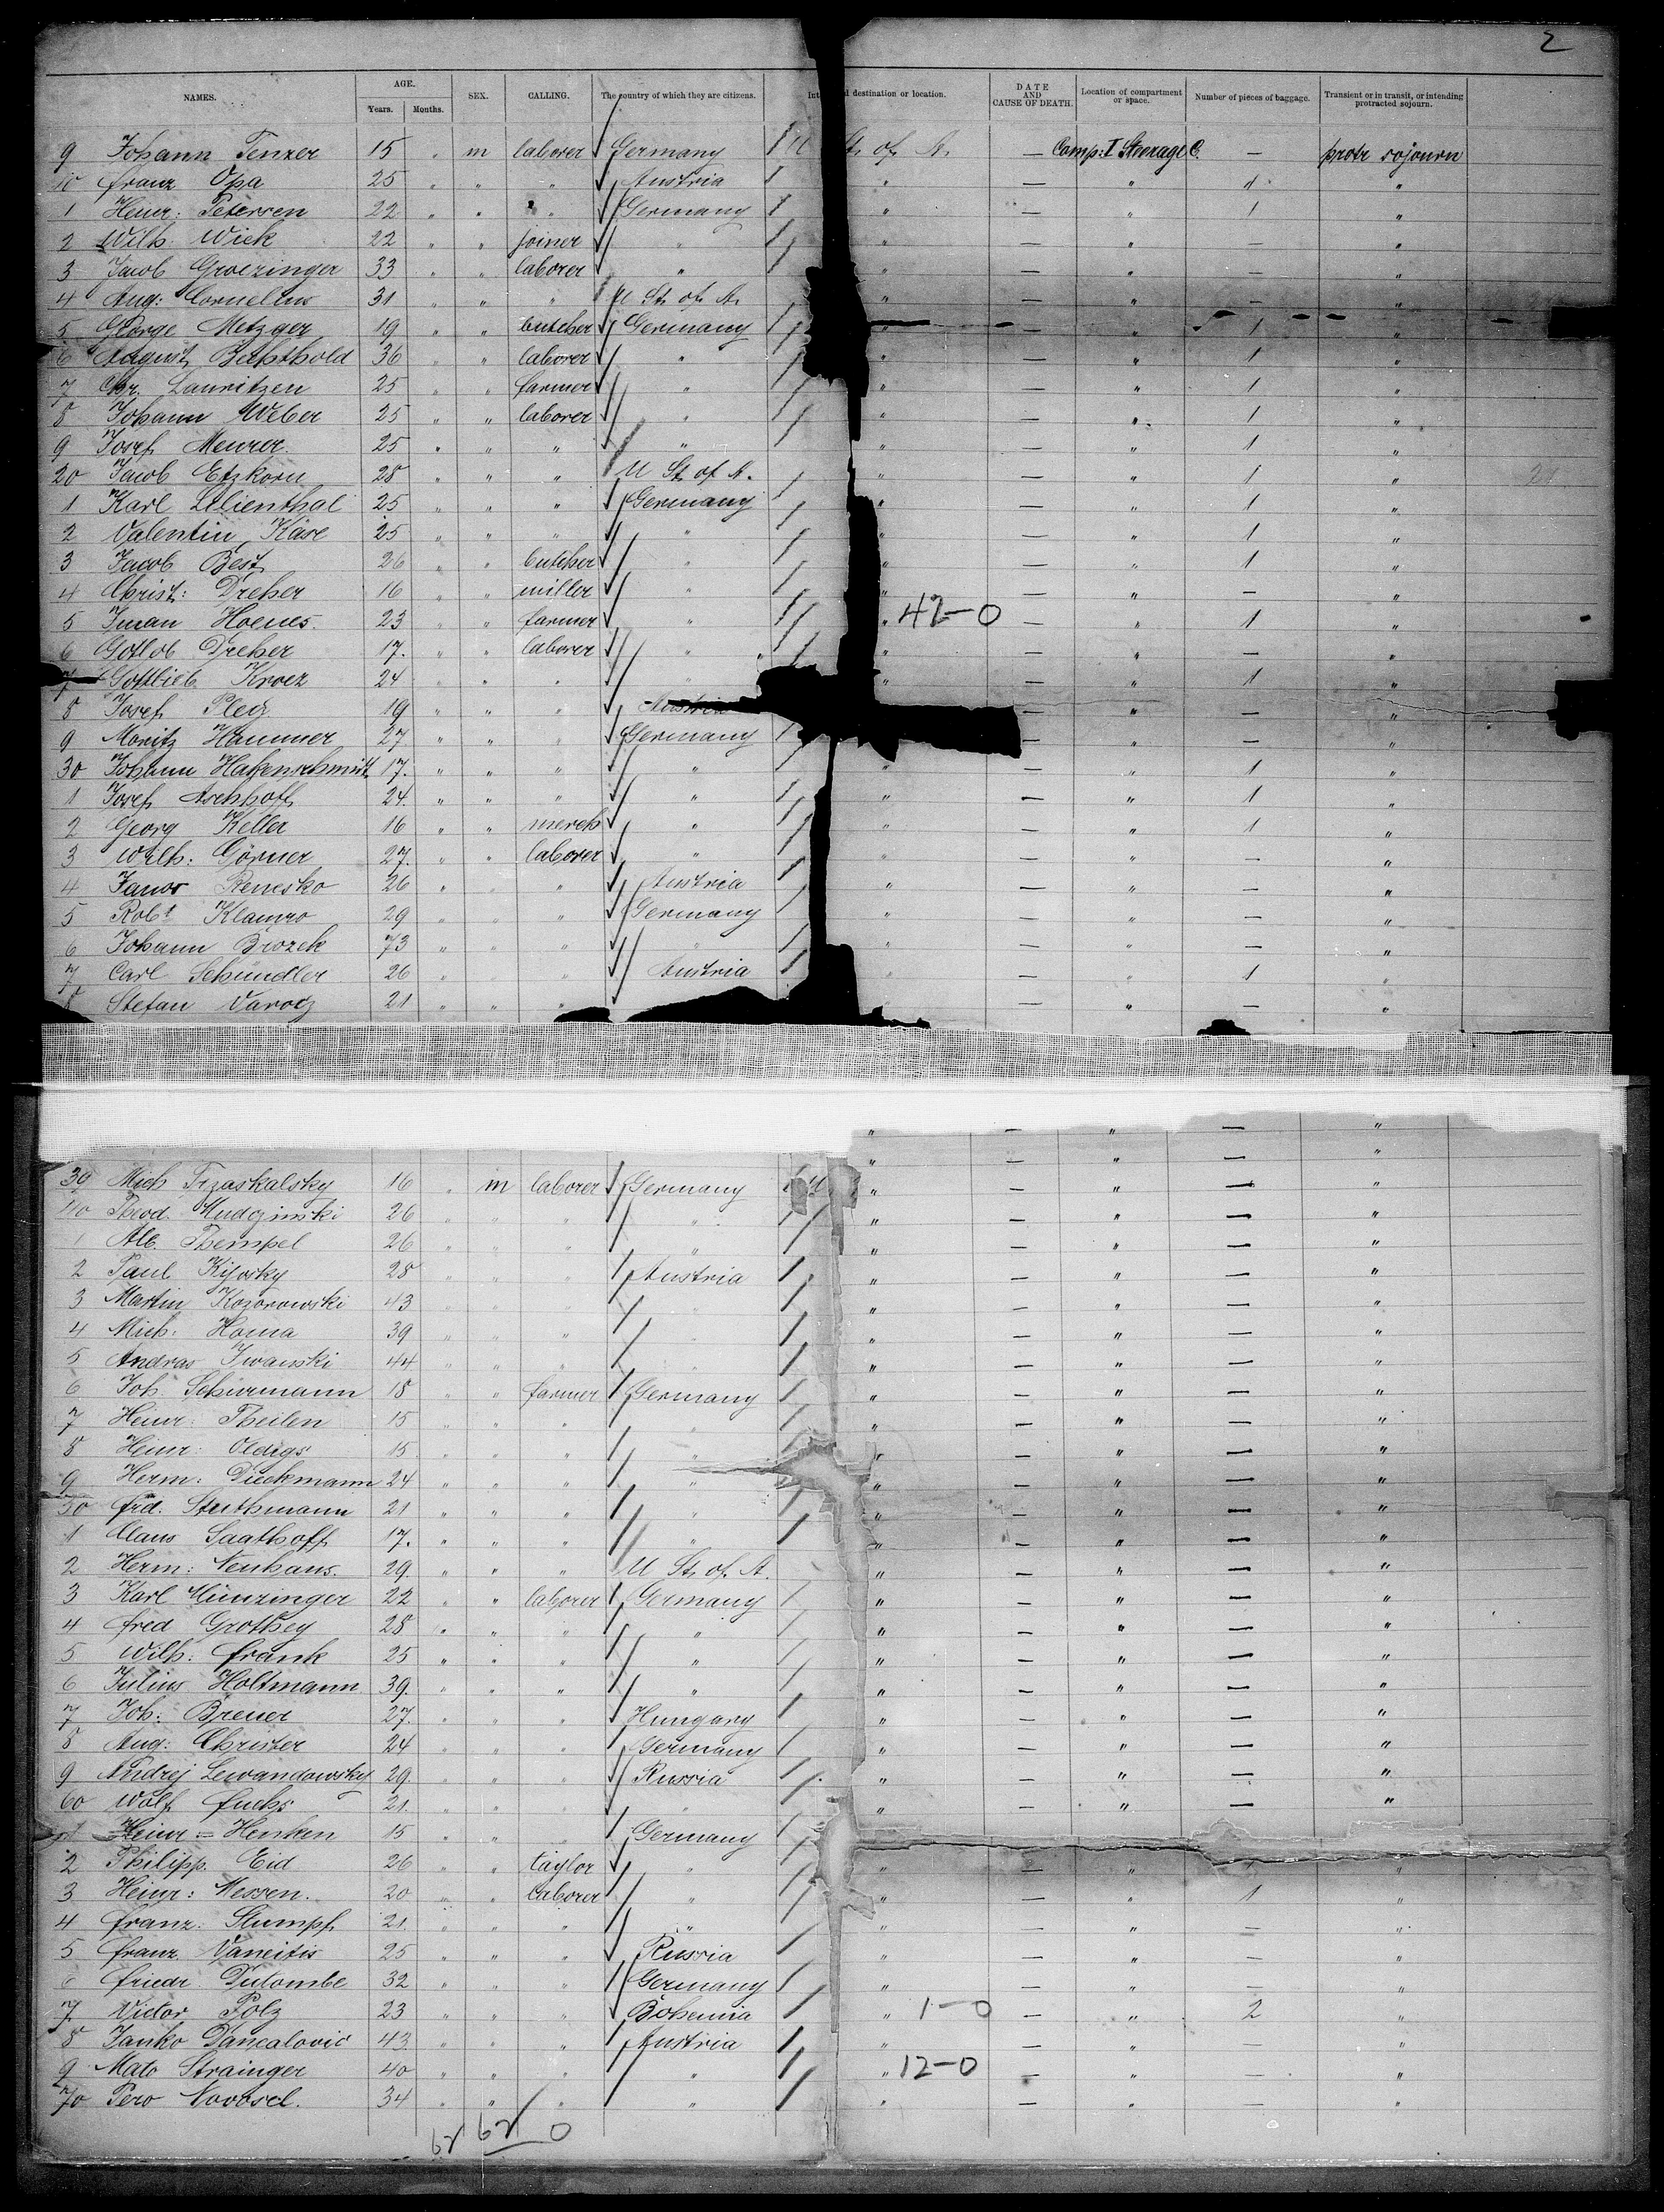 2
NAMES. AGE. Years. Months. SEX. CALLING. The country of which they are citizens. destination or location. DATE AND CAUSE OF DEATH. Location of compartment or space. Number of pieces of baggage. Transient or in transit, or intending protracted sojourn.
9 Johann Tenzer 15 " m laborer Germany U St. of A. — Comp: I Steerage C. — protr sojourn
10 Franz Opa 25 " " " Austria " — " 1 "
1 Heinr: Petersen 22 " " " Germany " — " 1 "
2 Wilh. Wick 22 " " joiner " " — " — "
3 Jacob Groezinger 33 " " laborer " " — " — "
4 Aug: Cornelius 31 " " " U St. of A. — " — "
5 George Metzger 19 " " butcher Germany " — " 1 "
6 August Bechthold 36 " " laborer " " — " 1 "
7 Chr. Lauritzen 25 " " farmer " " — " 1 "
8 Johann Weber 25 " " laborer " " — " 1 "
9 Josef Meurer 25 " " " " " — " 1 "
20 Jacob Etzkorn 28 " " " U St. of A. " — " 1 "
1 Karl Lilienthal 25 " " " Germany " — " 1 "
2 Valentin Käse 25 " " " " " — " 1 "
3 Jacob Best 26 " " butcher " " — " 1 "
4 Christ: Dreher 16 " " miller " " — " — "
5 Hoenes. 23 " " farmer " " 42-0 — " 1 "
6 Gotlob Dreher 17. " " laborer " " — " — "
7 Gottlieb Kroez 24 " " " " " — " 1 "
8 Josef 19 " " " Austria — " — "
9 Moritz Hammer 27 " " " Germany — " — "
30 Johann Hafenschmidt 17. " " " " " — " 1 "
1 Josef Aschhoff 24. " " " " " — " 1 "
2 Georg Keller 16 " " merch " " — " 1 "
3 Wilh: Görner 27. " " laborer " " — " — "
4 Janos 26 " " " Austria " — " — "
5 Robt 29 " " " Germany " — " — "
6 Johann Brozek 73 " " " " " — " — "
7 Carl Schündler 26 " " " Austria " — " 1 "
8 Stefan 21 " " " " — " — "
" — " — "
" — " — "
39 Mich Trzaskalsky 16 " m laborer Germany U " — " — "
40 Theod. 26 " " " " " — " — "
1 Alb. Thempel 26 " " " " " — " — "
2 Paul 28 " " " Austria " — " — "
3 Martin Kozorowski 43 " " " " " — " — "
4 Mich: Homa 39 " " " " " — " — "
5 Andras Iwanski 44 " " " " " — " — "
6 Joh. Schürmann 18 " " farmer Germany " — " — "
7 Heinr: Theilen 15 " " " " " — " — "
8 Heinr: Oldigs 15 " " " " " — " — "
9 Herm: Dieckmann 24 " " " " " — " — "
50 Frd. Stuthmann 21 " " " " " — " — "
1 Claus Saathoff 17. " " " " " — " — "
2 Herm: Neuhaus. 29. " " " U St. of A. " — " — "
3 Karl Münzinger 22 " " laborer Germany " — " — "
4 Fred Grothey 28 " " " " " — " — "
5 Wilh: Frank 25 " " " " " — " — "
6 Julius Holtmann 39. " " " " " — " — "
7 Joh: Breuer 27. " " " Hungary " — " — "
8 Aug: Christer 24 " " " Germany " — " — "
9 Andrej Lewandowsky 29. " " " Russia " — " — "
60 Wolf Fuchs 21. " " " " " — " — "
1 Heinr: Henken 15 " " " Germany
2 Philipp. Eid 26 " " taylor " " — " 1 "
3 Heinr: Nessen. 20 " " laborer " " — " 1 "
4 Franz: Stumpf 21 " " " " " — " — "
5 Franz Vaneitis 25 " " " Russia " — " — "
6 Friedr. 32 " " " Germany " — " — "
7 Victor Polz 23 " " " Bohemia " 1-0 — " 2 "
8 Janko 43 " " " Austria " — " — "
9 Mato Strainger 40 " " " " " 12-0 — " — "
70 Pero Novosel. 34 " " " " " — " — "
62 62 0